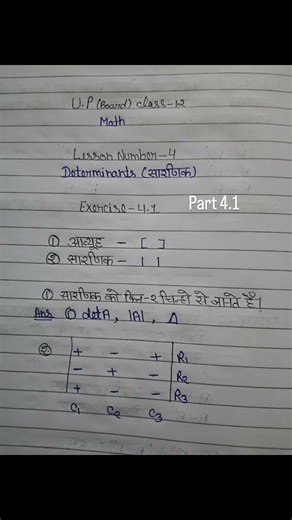 U.P (Board) class-12
Math
Lesson Number-4
Determinants (सारणिक)
Exercise-4.1
Part 4.1
① आव्यूह - [ ]
② सारणिक - | |
① सारणिक को किन-२ चिन्हो से जानते है।
Ans ① detA, |A|, Δ
② + - + R₁
- + - R₂
+ - + R₃
C₁ C₂ C₃